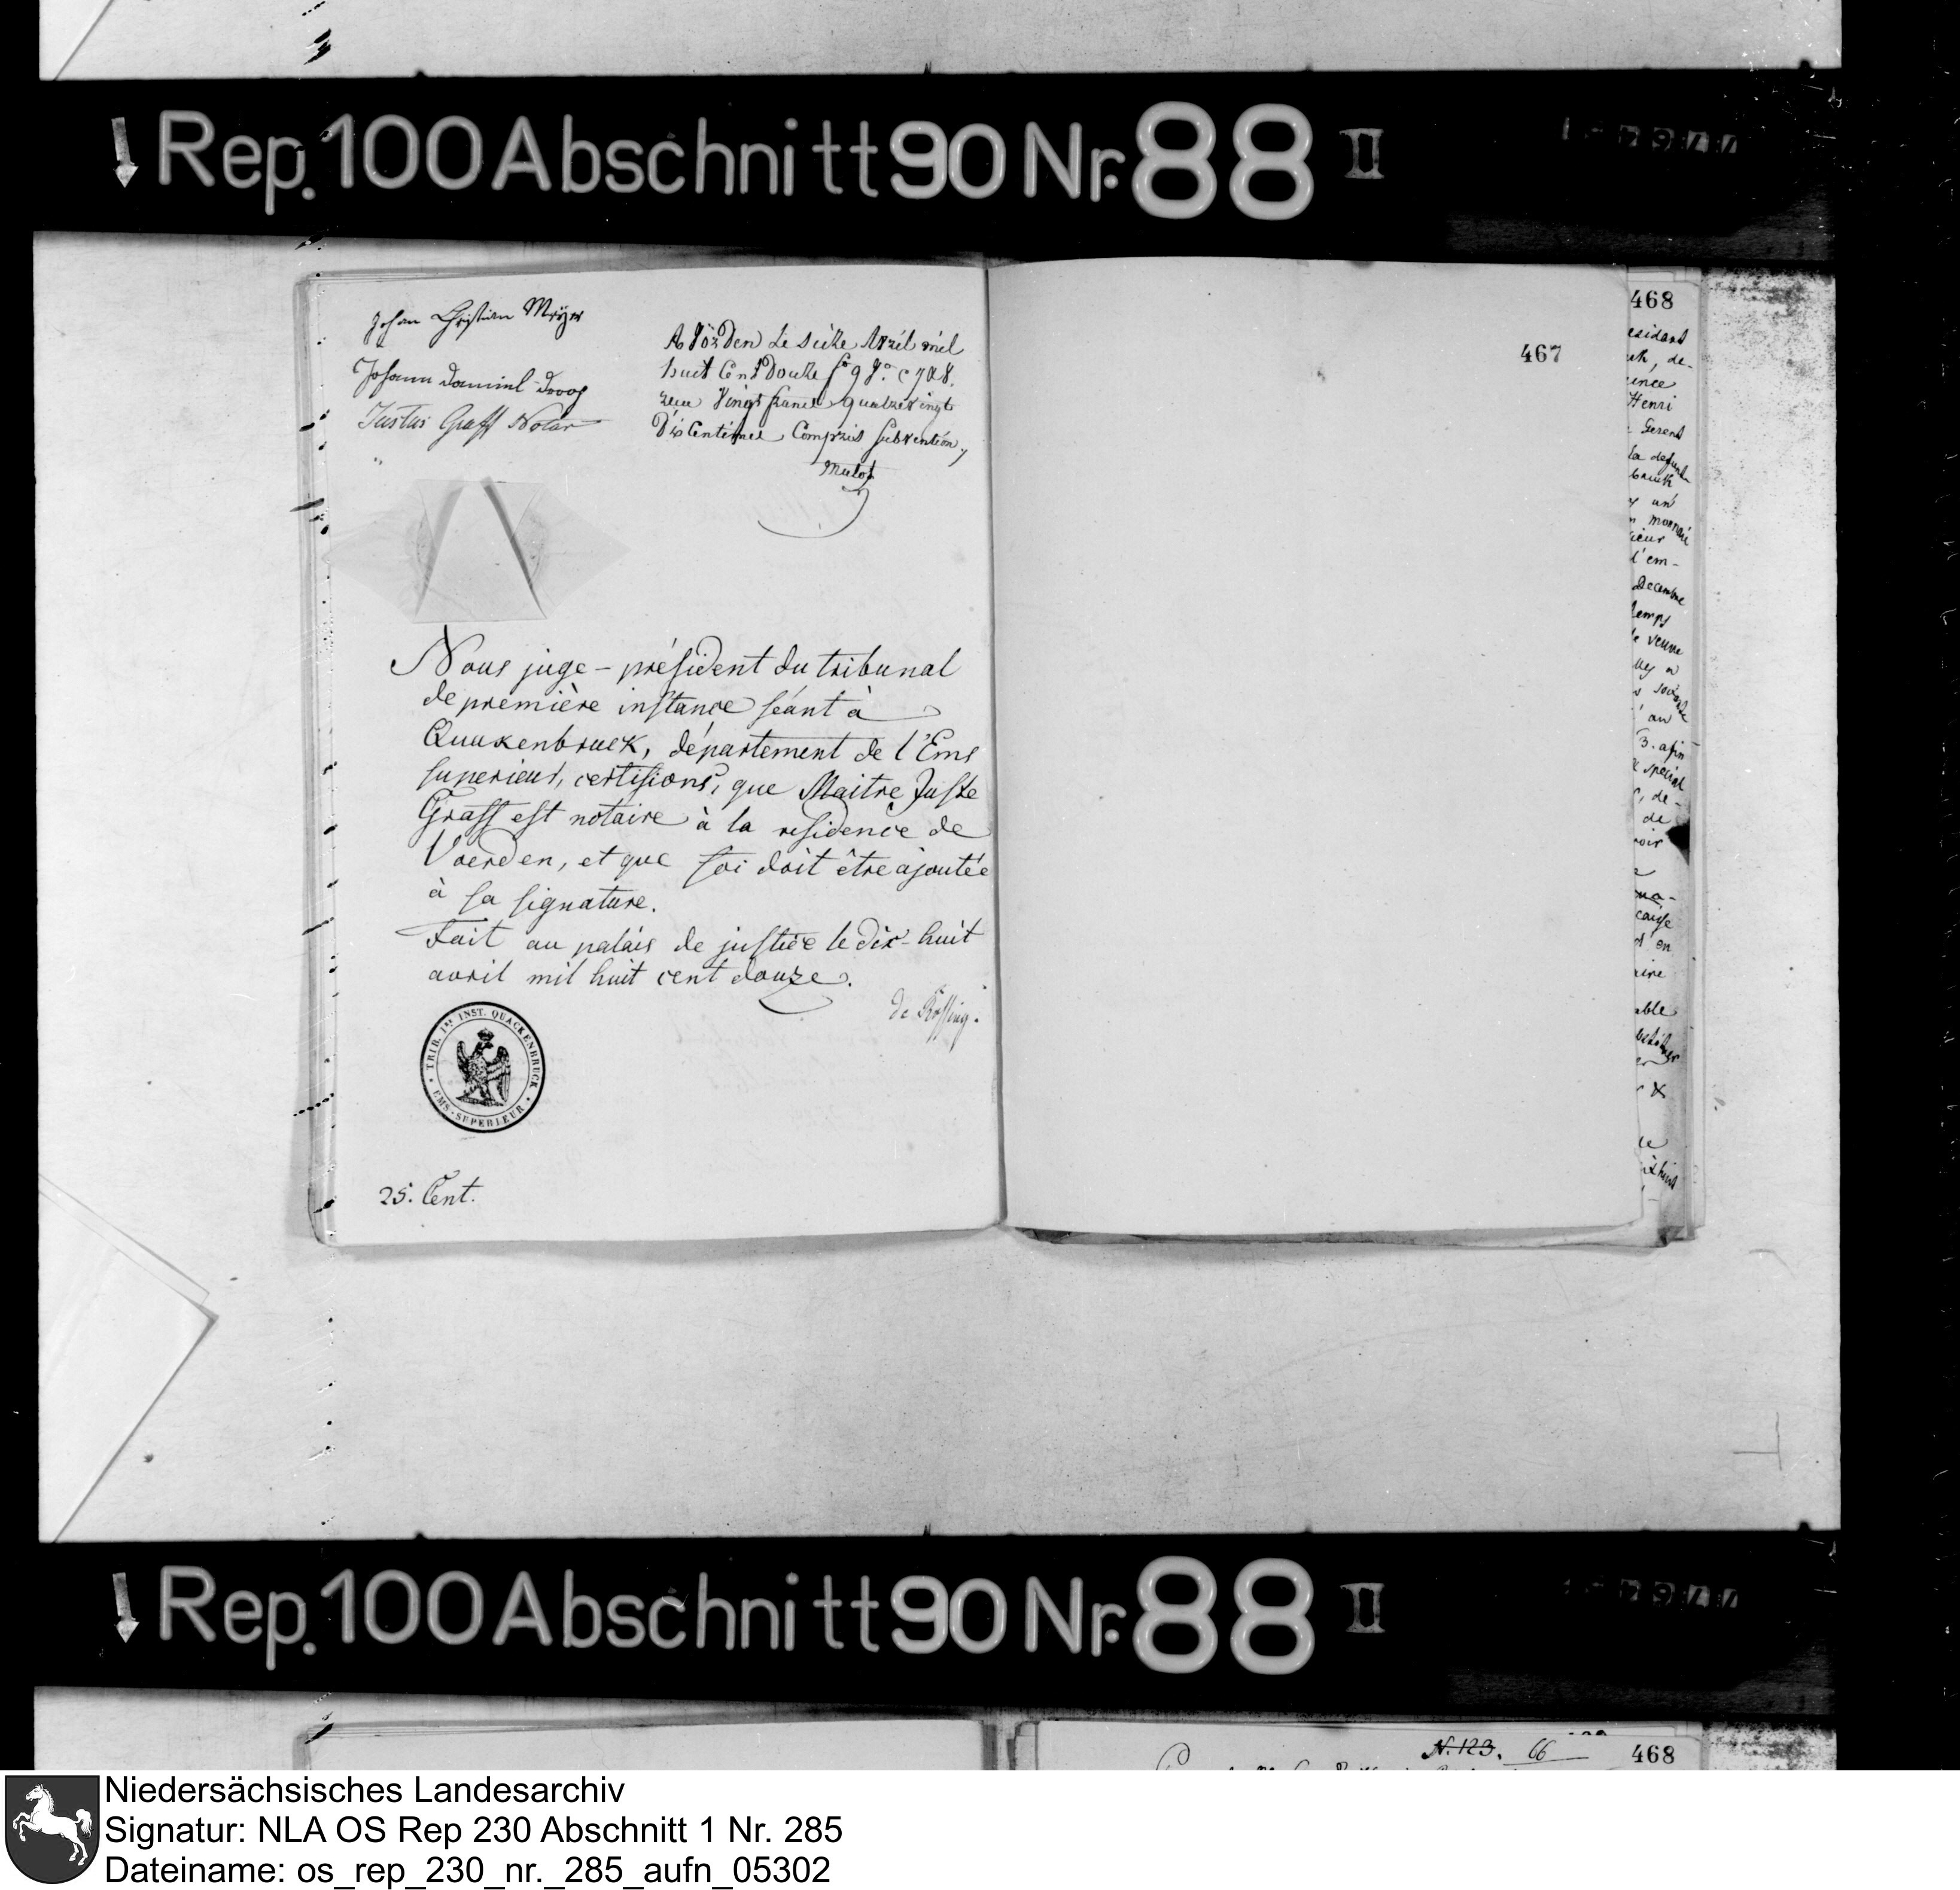 Rep. 100 Abschnitt 90 Nr. 88 II
Johan Christian Meÿer
Johann Daniniel
Justus Graff Notar
A Vörden Le Seize Avril mil
huit Cent Douze fo 9 Vo. C 7 & 8.
reçu Vingt francs quatrevingt
Dix Centimes Compris Subvention
Nous juge-président du tribunal
de première instance séant à
Quakenbruck, département de l'Ems
superieur, certifions, que Maitre Juste
Graff est notaire à la residence de
Voerden, et que foi doit être ajoutée
à sa signature.
Fait au palais de justice le dix-huit
avril mil huit cent douze.
TRIB. 1re INST. QUACKENBRUCK
EMS-SUPERIEUR
25. Cent.
467
468
esidant
de-
Henri
Gerent
la
un
l'em-
Decembre
temps
veuve
au
3. afin
special
de-
de
cause
d'en
able
Rep. 100 Abschnitt 90 Nr. 88 II
N. 123. 66
468
Niedersächsisches Landesarchiv
Signatur: NLA OS Rep 230 Abschnitt 1 Nr. 285
Dateiname: os_rep_230_nr._285_aufn_05302